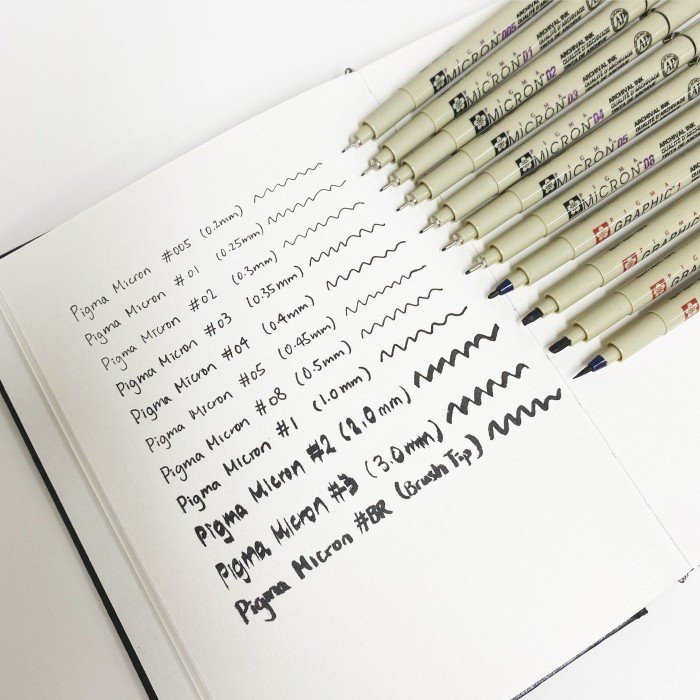 Pigma Micron #005 (0.2mm)
Pigma Micron #01 (0.25mm)
Pigma Micron #02 (0.3mm)
Pigma Micron #03 (0.35mm)
Pigma Micron #04 (0.4mm)
Pigma Micron #05 (0.45mm)
Pigma Micron #08 (0.5mm)
Pigma Micron #1 (1.0mm)
Pigma Micron #2 (2.0mm)
Pigma Micron #3 (3.0mm)
Pigma Micron #BR (Brush Tip)
PIGMA MICRON 005 ARCHIVAL INK
PIGMA MICRON 01 ARCHIVAL INK QUALITÉ D'ARCHIVAGE
PIGMA MICRON 02 ARCHIVAL INK QUALITÉ D'ARCHIVAGE
PIGMA MICRON 03 ARCHIVAL INK QUALITÉ D'ARCHIVAGE
PIGMA MICRON 04 ARCHIVAL INK QUALITÉ D'ARCHIVAGE
PIGMA MICRON 05 ARCHIVAL INK
PIGMA MICRON 08
PIGMA GRAPHIC 1
GRAPHIC